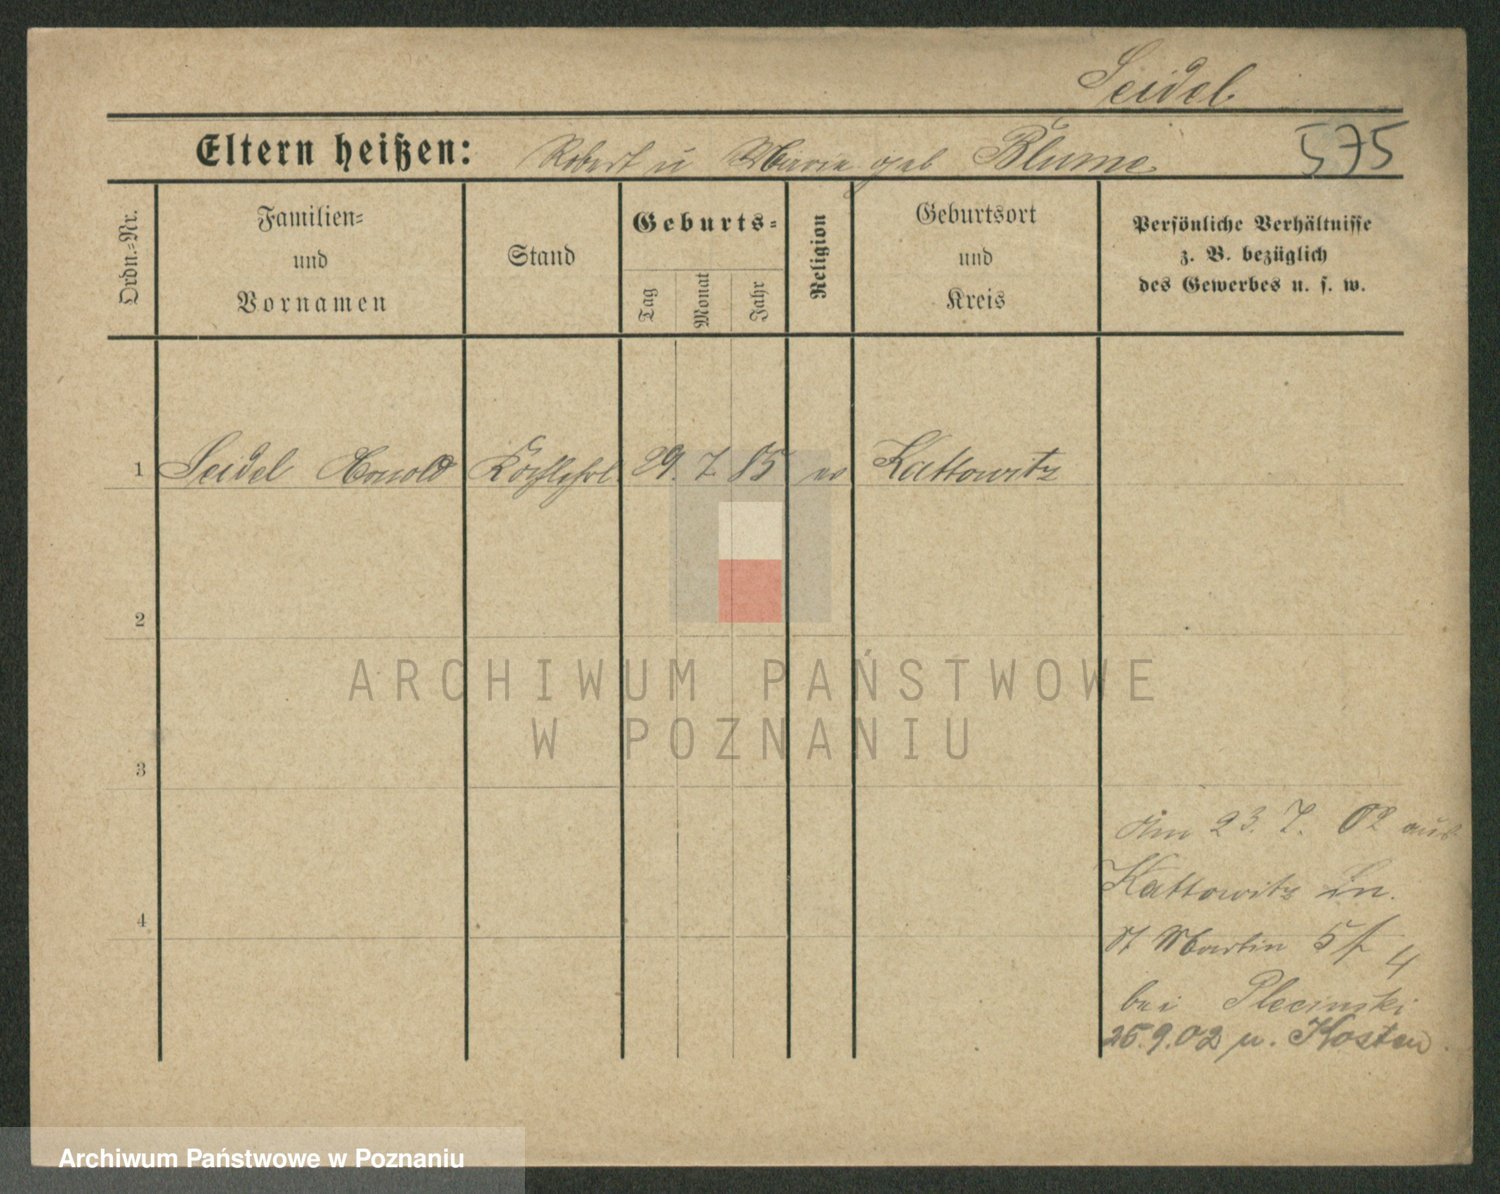 Seidel
Eltern heißen: Robert u Maria geb Blume 575
Ordn.=Nr.
Familien=
und
Vornamen
Stand
Geburts=
Tag
Monat
Jahr
Religion
Geburtsort
und
Kreis
Persönliche Verhältnisse
z. B. bezüglich
des Gewerbes u. s. w.
1 Seidel Arnold Kochlehrl. 29. 7. 85 ev Kattowitz
2
ARCHIWUM PAŃSTWOWE
W POZNANIU
3
Am 23. 7. 02 aus
Kattowitz in.
4
St Martin 4
bei Plecinski
25.9.02 n. Kosten
Archiwum Państwowe w Poznaniu